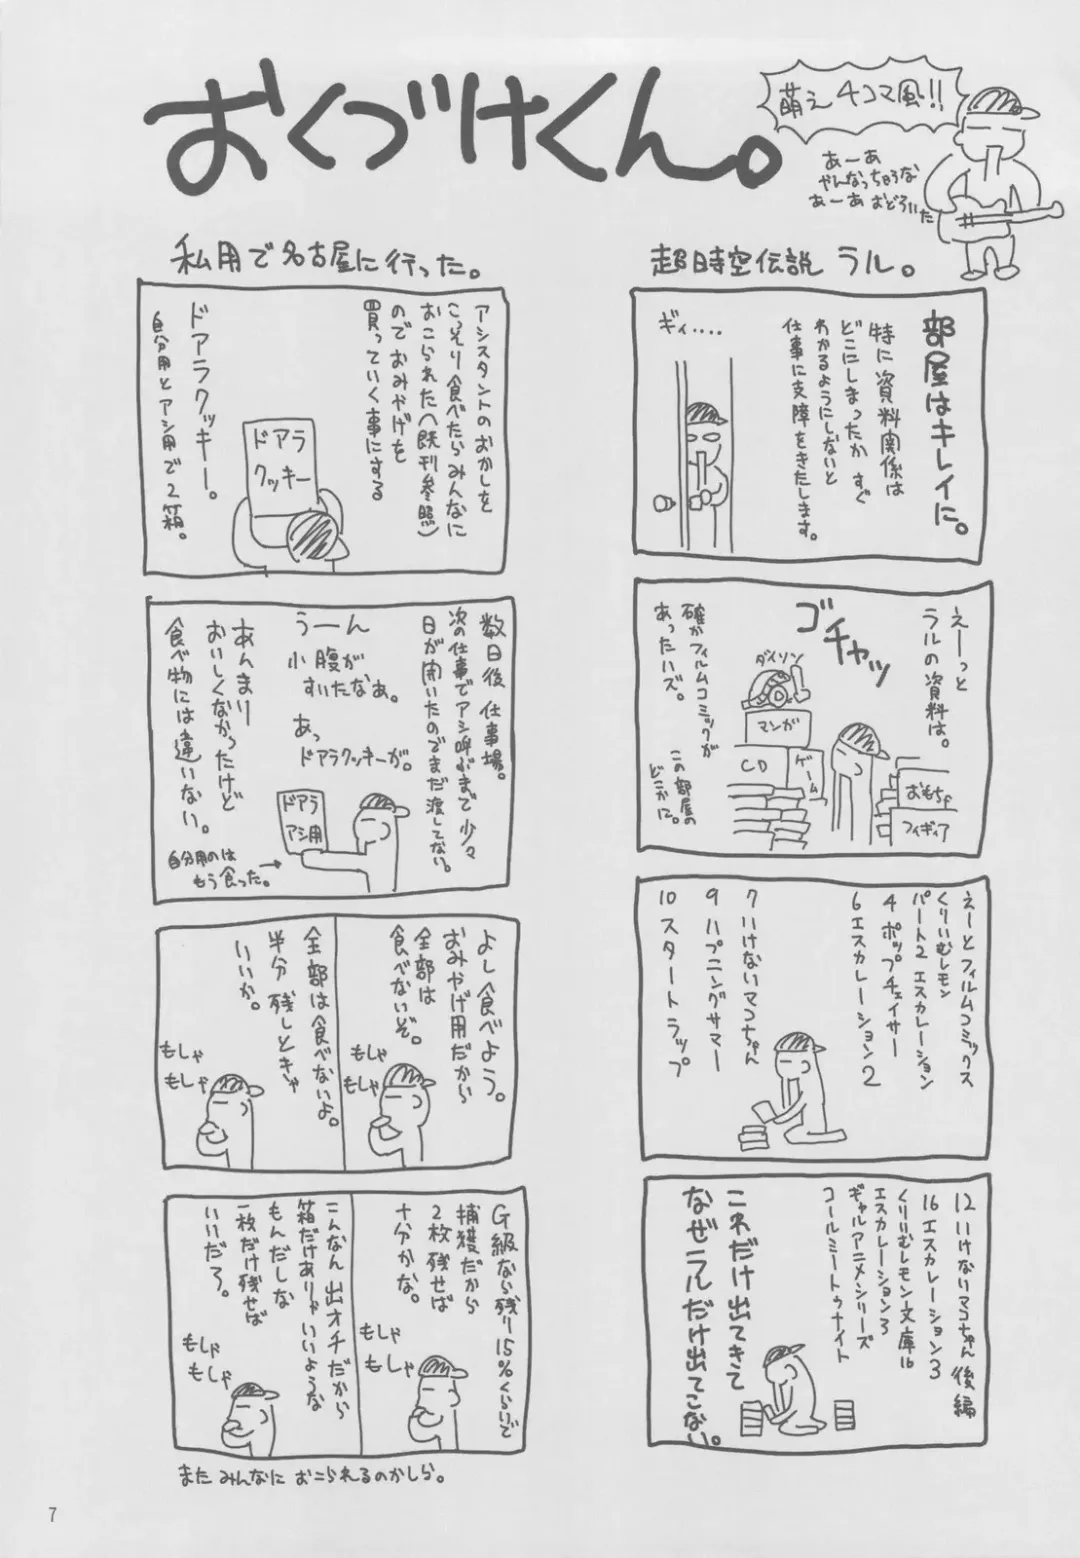 おくづけくん。
萌え4コマ風!!
あーあ
やんなっちゃうな
あーあ おどろいた
超時空伝説 ラル。
部屋はキレイに。
特に資料関係は
どこにしまったか すぐ
わかるようにしないと
仕事に支障をきたします。
ギィ‥‥
えーーっと
ラルの資料は。
ゴチャッ
ダイソン
マンガ
CD
ゲーム
おもちゃ
フィギィア
確かフィルムコミックが
あったハズ。
この部屋の
どこかに。
えーとフィルムコミックス
くりいむレモン
パート2 エスカレーション
4 ポップチェイサー
6 エスカレーション2
7 いけないマコちゃん
9 ハプニングサマー
10 スタートラップ
12 いけないマコちゃん 後編
16 エスカレーション3
くりいむレモン文庫16
エスカレーション3
ギャルアニメシリーズ
コールミートゥナイト
これだけ出てきて
なぜラルだけ出てこない。
私用で名古屋に行った。
アシスタントのおかしを
こっそり食べたらみんなに
おこられた(既刊参照)
のでおみやげを
買っていく事にする
ドアラ
クッキー
ドアラクッキー。
自分用とアシ用で2箱。
数日後 仕事場。
次の仕事でアシ呼ぶまで少々
日が開いたのでまだ渡してない。
うーーん
小腹が
すいたなぁ。
あっ
ドアラクッキーが。
ドアラ
アシ用
あんまり
おいしくなかったけど
食べ物には違いない。
自分用のは
もう食った。→
よし食べよう。
おみやげ用だから
全部は
食べないぞ。
もしゃ
もしゃ
全部は食べないよ。
半分 残しときゃ
いいか。
もしゃ
もしゃ
G級なら残り15%くらいで
捕獲だから
2枚 残せば
十分かな。
もしゃ
もしゃ
こんなん 出オチだから
箱だけありゃ いいような
もんだしな
一枚だけ残せば
いいだろ。
もしゃ
もしゃ
また みんなに おこられるのかしら。
7